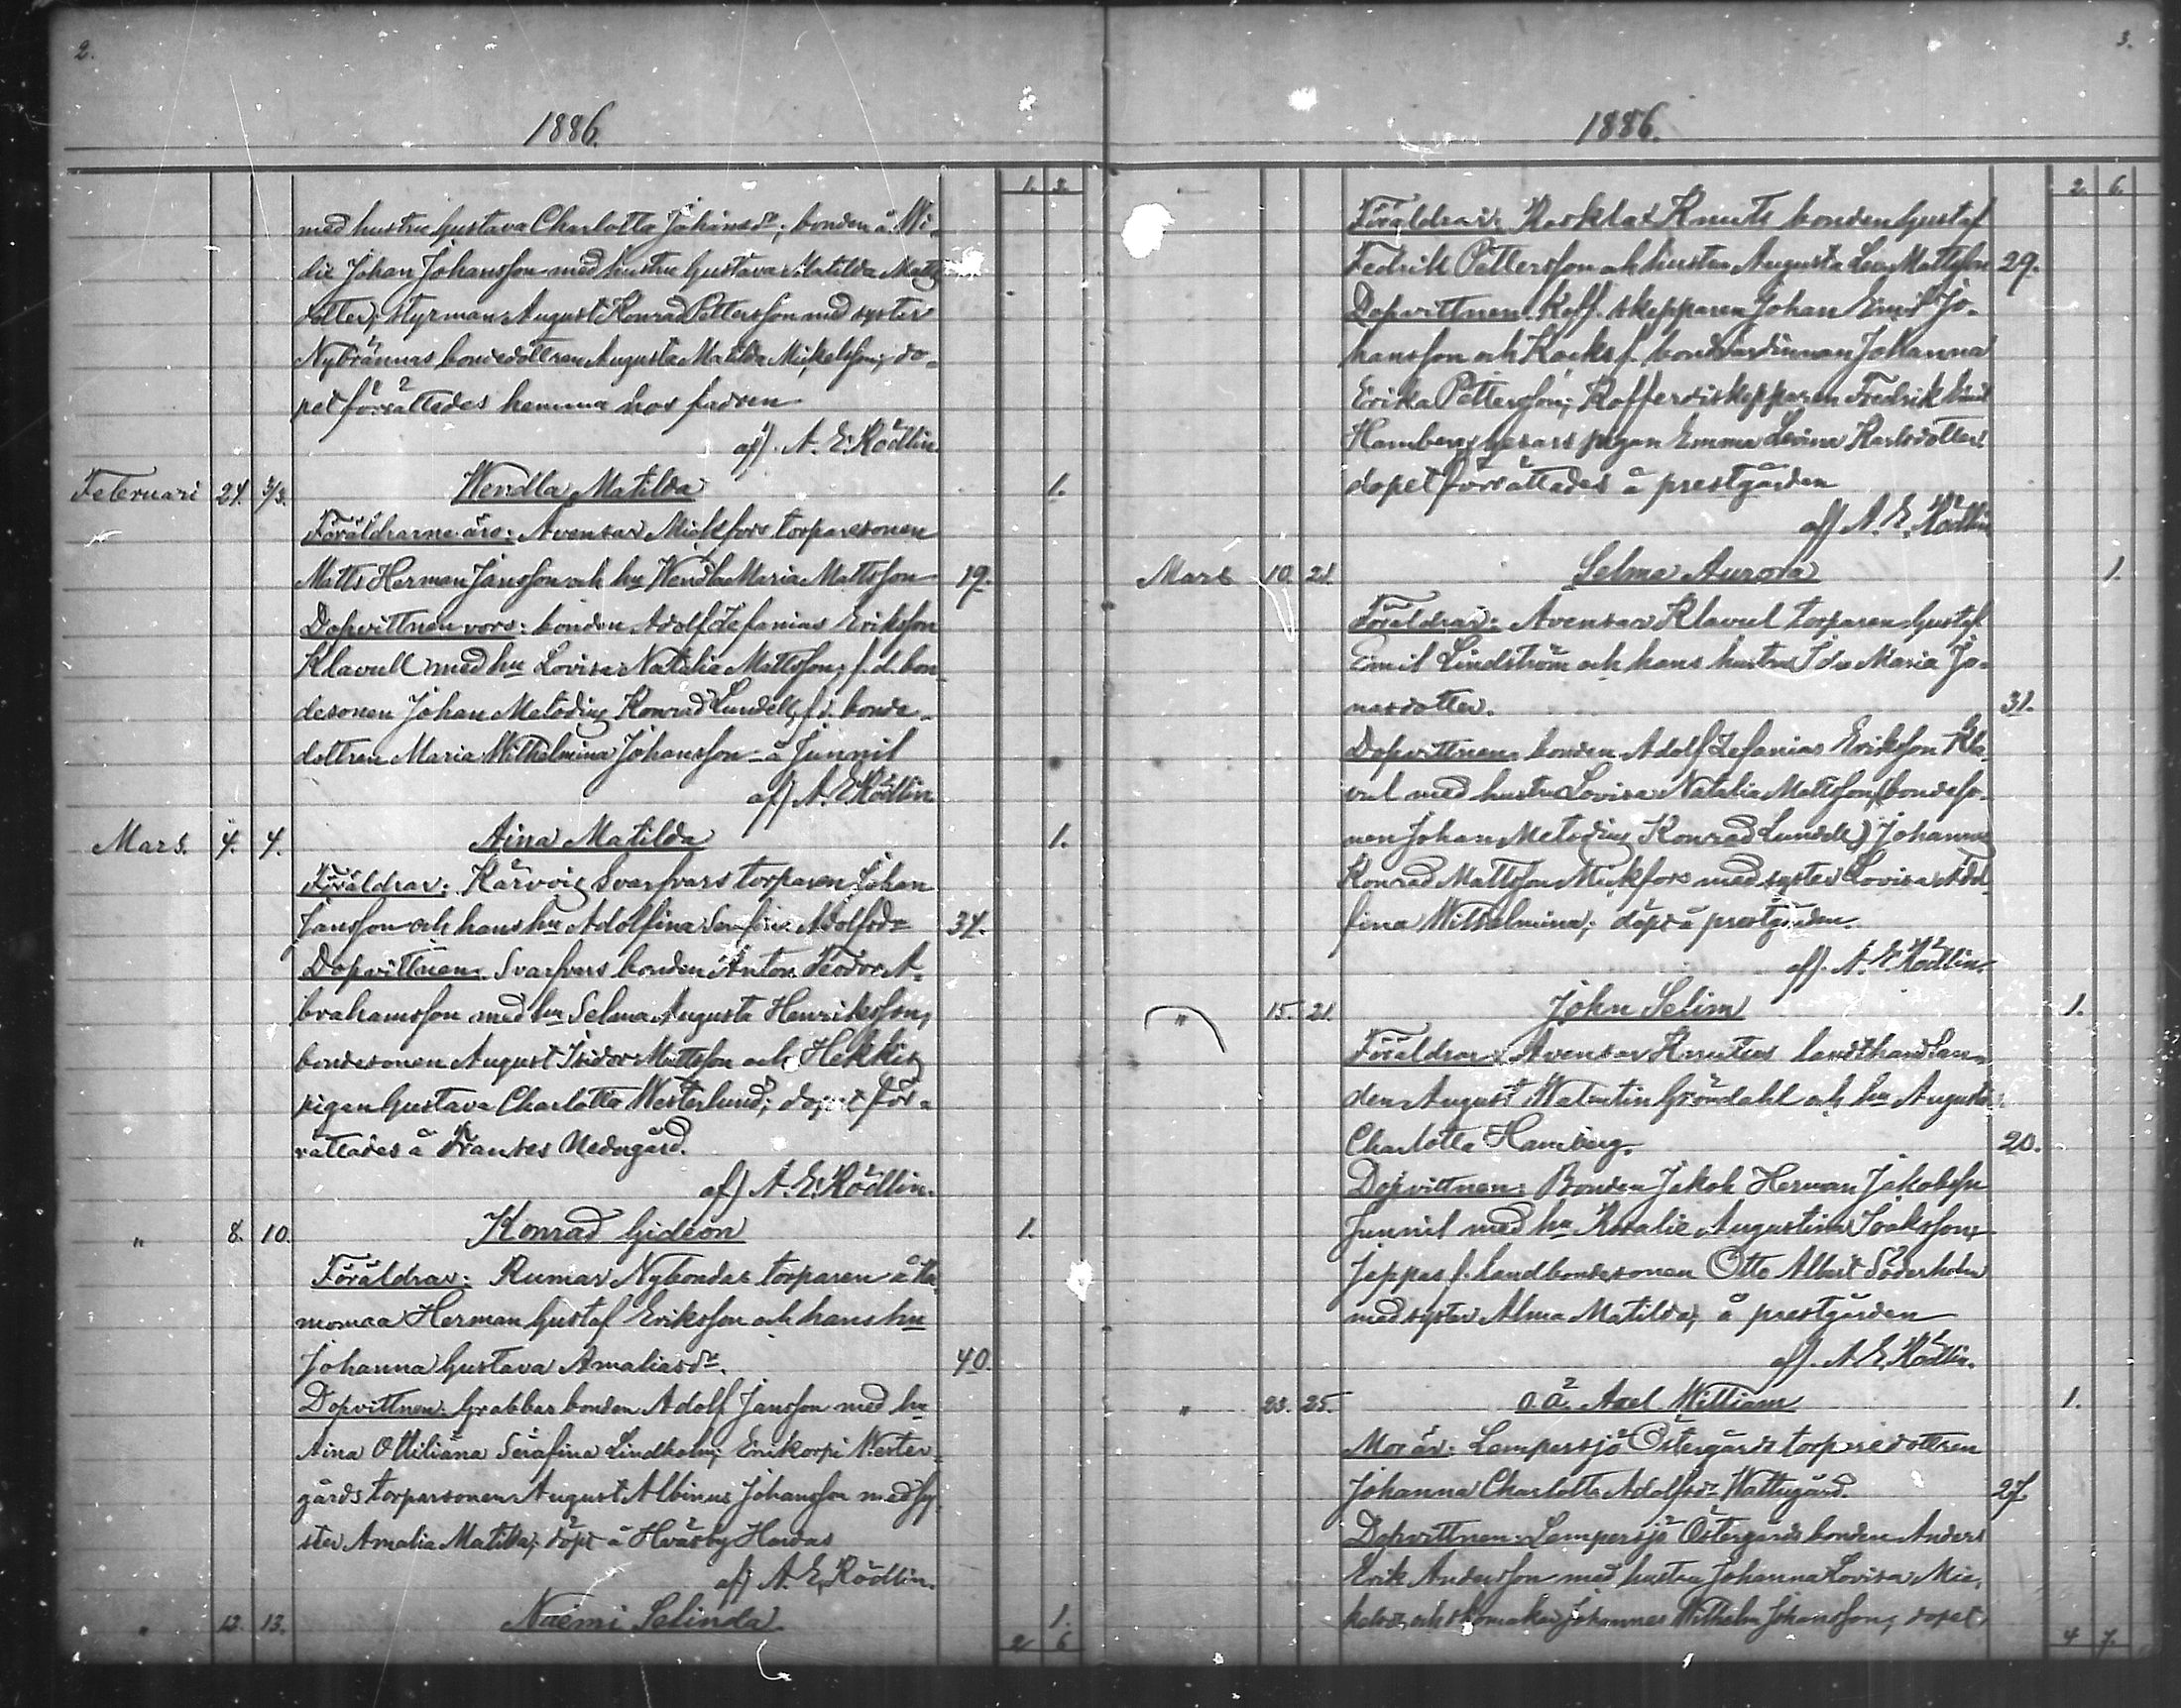 2.
1886.
1. 3.
med hustru Gustava Charlotta Johansdr; bonden å Wi-
die Johan Johansson med hustru Gustava Matilda Matts
dotter; styrman August Konrad Pettersson med syster
Nybrännas bondedottren Augusta Matilda Mickelsson; do-
pet förrättades hemma hos fadren
af/. A. E. Rödlin
Februari 24. 3/3. Wendla Matilda 1.
Föräldrarne äro: Avensar Mickfors torparesonen
Matts Herman Jansson och hu Wendla Maria Mattsson 19.
Dopvittnen voro: bonden Adolf Zefanias Eriksson
Klavull med hu Lovisa Natalia Mattsson, f. d. bon-
desonen Johan Metodius Konrad Lundell, f. d. bonde-
dottren Maria Wilhelmina Johansson å Junnil
af/ A. E. Rödlin
Mars. 4. 4. Aina Matilda 1.
Föräldrar: Kärvois Svarfvars torparen Johan
Jansson och hans hu Adolfina Serafina Adolfsdr 34.
Dopvittnen. Svarfvars bonden Anton Teodor A-
brahamsson med hu Selma Augusta Henriksson,
bondesonen August Isidor Mattsson och Hekkis
pigan Gustava Charlotta Westerlund; dopet för-
rättades å Franses Nedergård.
af/ A. E. Rödlin.
" 8. 10. Konrad Gideon 1.
Föräldrar: Rumar Nybondas torparen å Ta-
momaa Herman Gustaf Eriksson och hans hu
Johanna Gustava Amaliasdr. 40.
Dopvittnen. Grabbas bonden Adolf Jansson med hu
Aina Ottiliana Serafina Lindholm; Erikorpi Wester-
gårds torparesonen August Albinus Johansson med sy-
ster Amalia Matilda; döpt å Hväsby Hardas
af/ A. E. Rödlin.
" 13. 13. Naemi Selinda. 1.
2 6
3.
1886.
2. 6.
Föräldrar: Korklax Knuts bonden Gustaf
Fedrik Pettersson och hustru Augusta Lovisa Mattsson 29.
Dopvittnen. Koff. skepparen Johan Emil Jo-
hansson och Kocks f. bondvärdinnan Johanna
Erika Pettersson; Kofferdiskepparen Fredrik Emil
Hamberg, pigan Emma Lovina Karlsdotter
dopet förrättades å prestgården
af/ A. E. Rödlin
Mars 10. 21. Selma Aurora 1.
Föräldrar: Avensar Klavul torparen Gustaf
Emil Lindström och hans hustru Ida Maria Jo-
nasdotter. 31.
Dopvittnen. bonden Adolf Zefanias Eriksson Kla-
vul med hustru Lovisa Natalia Mattsson, (bondeso-
nen Johan Metodius Konrad Lundell) Johannes
Konrad Mattsson Mickfors med syster Lovisa Adol-
fina Wilhelmina; döpt å prestgården.
af/. A. E. Rödlin.
" 15. 21. John Selim 1.
Föräldrar: Avensar Knuters landthandlan-
den August Walentin Gröndahl och hu Augusta
Charlotta Hamberg. 20.
Dopvittnen: Bonden Jakob Herman Jakobsson
Junnil med hu Rosalie Augustina Isaksson,
Jeppas f. landbondesonen Otto Albert Söderholm
med syster Alma Matilda; å prestgården
af/. A. E. Rödlin.
" 23. 25. o.ä. Axel William 1.
Mor är: Lempersjö Östergårds torparedottren
Johanna Charlotta Adolfsdr Wattugård. 27.
Dopvittnen: Lempersjö Östergårds bonden Anders
Erik Andersson med hustru Johanna Lovisa Mic-
kelsdr och skomakar Johannes Wilhelm Johansson; dopet
4 7.